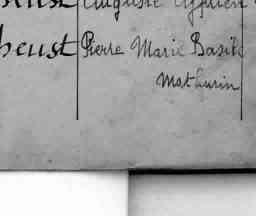 Auguste Cyprien
heust Pierre Marie Basile
Mathurin